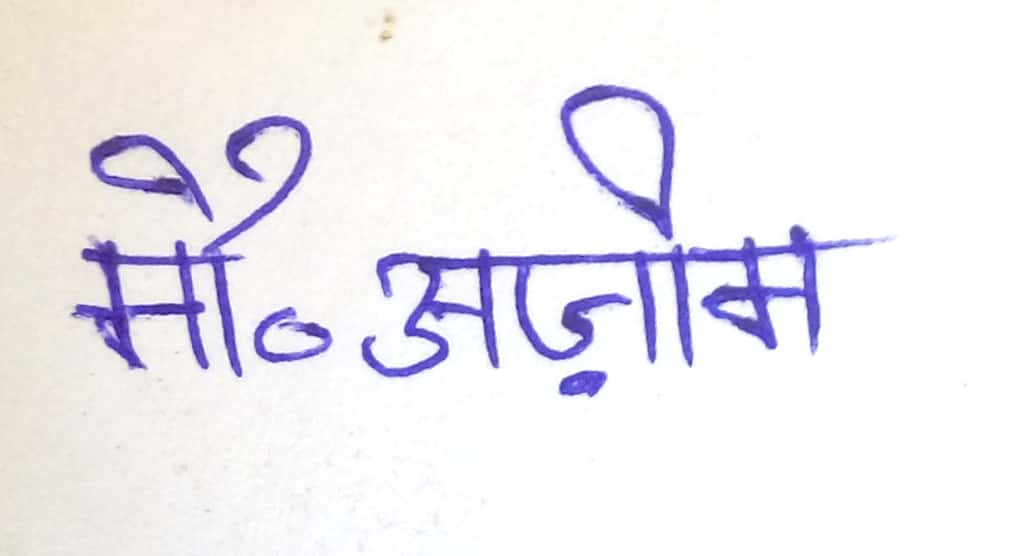 मौ० अज़ीम